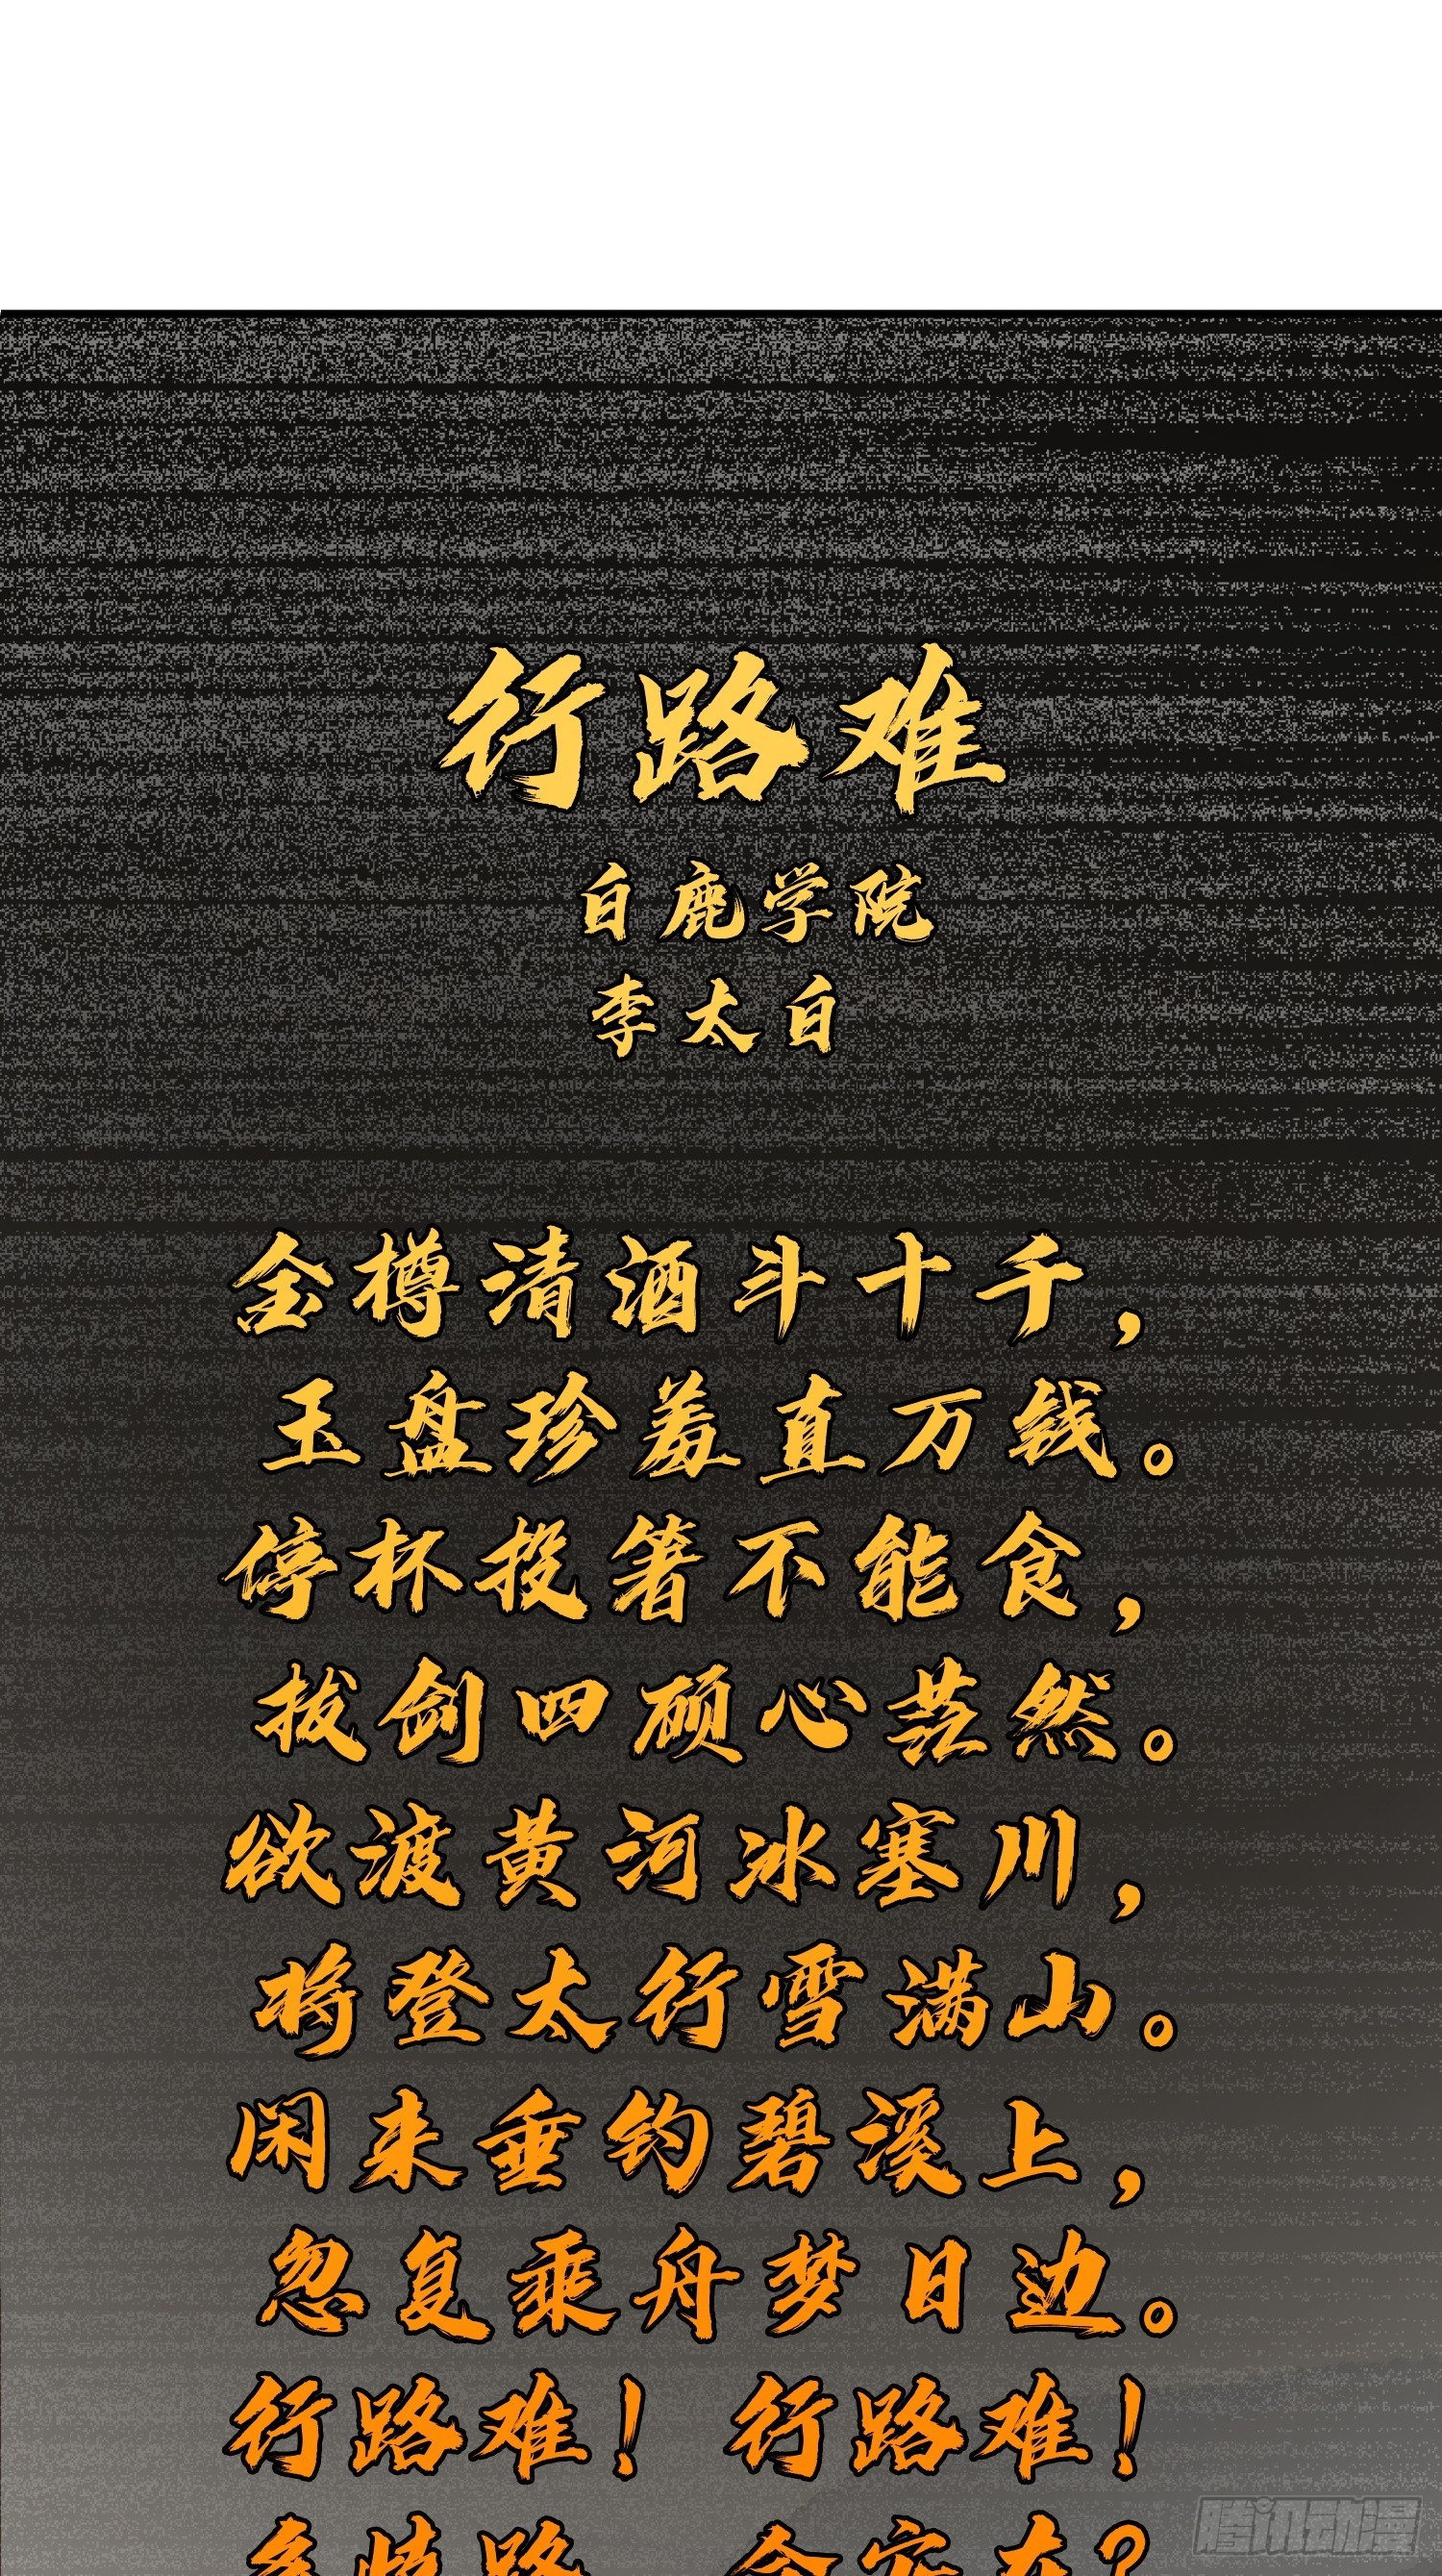 行路难
白鹿学院
李太白
金樽清酒斗十千，
玉盘珍羞直万钱。
停杯投箸不能食，
拔剑四顾心茫然。
欲渡黄河冰塞川，
将登太行雪满山。
闲来垂钓碧溪上，
忽复乘舟梦日边。
行路难！ 行路难！
多歧路，今安在？
腾讯动漫